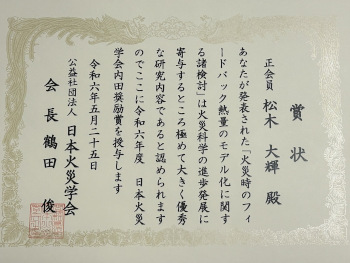 賞状
正会員 松木 大輝 殿
あなたが発表された「火災時のフィ
ードバック熱量のモデル化に関す
る諸検討」は火災科学の進歩発展に
寄与するところ極めて大きく優秀
な研究内容であると認められます
のでここに令和六年度 日本火災
学会内田奨励賞を授与します
令和六年五月二十五日
公益社団法人 日本火災学会
会長 鶴田 俊